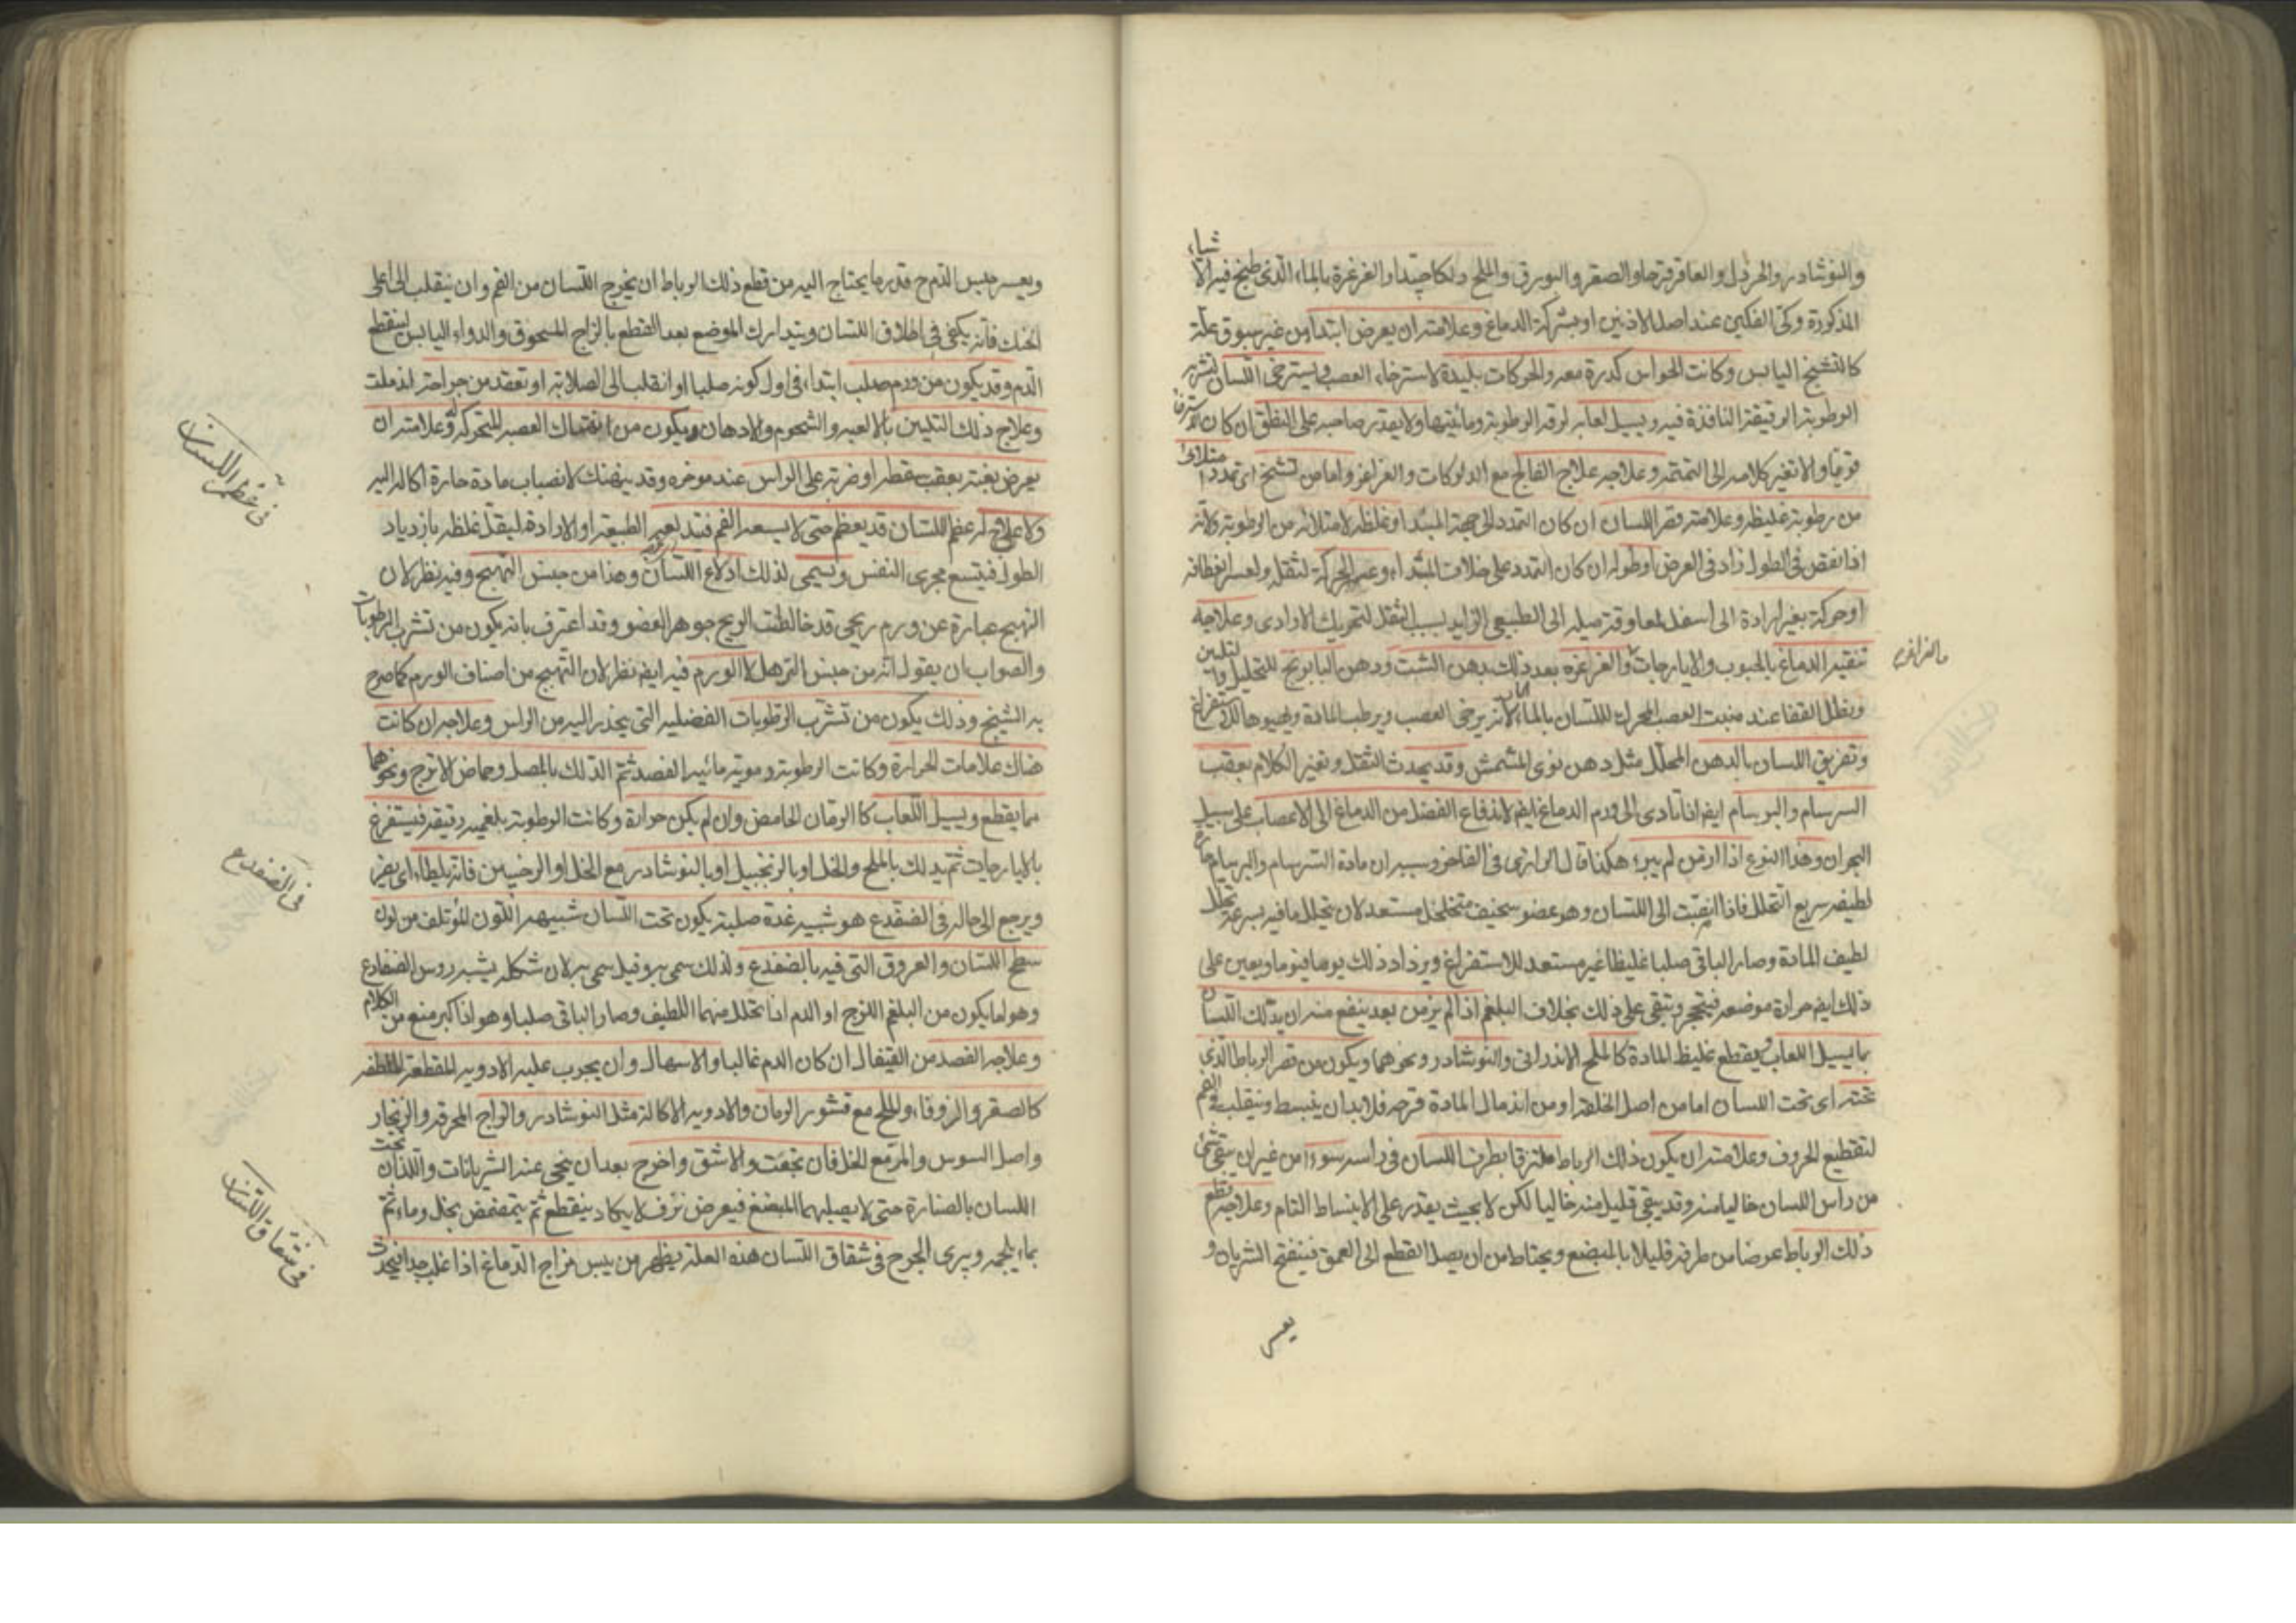 والنوشادر والخردل والعاقرقرحا والصعتر والبورق والملح دلكا جيدا والغرغرة بالماء الذى طبخ فيه الاشياء
المذكورة وكى الفكين عند اصل الاذنين او بشركة الدماغ وعلامته ان يعرض ابتداء من غير سبوق علة
كالتشنج اليابس وكانت الحواس كدرة معه والحركات بليدة لاسترخاء العصب ويسترخى اللسان لتشربه
الرطوبة الرقيقة النافذة فيه ويسيل لعابه لرقة الرطوبة ومائيتها ولا يقدر صاحبه على النطق ان كان الاسترخاء
قويا والا تغير كلامه الى التمتمة وعلاجه علاج الفالج مع الدلوكات والغراغر واما من تشنج اى تمدد امتلائى
من رطوبة غليظة وعلامته قصر اللسان ان كان التمدد الى جهة المبتداء وغلظه لامتلائه من الرطوبة ولانه
اذا نقص فى الطول زاد فى العرض او طوله ان كان التمدد على خلاف المبتداء وعسر الحركة لثقله ولعسر انعطافه
او حركة بغير ارادة الى اسفل لمعاوقة ميله الى الطبيعى الزايد بسبب الثقل لتحريك الارادى وعلاجه
تنقية الدماغ بالحبوب والايارجات والغراغره بعد ذلك بدهن الشبت ودهن البابونج للتحليل والتليين
والغراغره
ونطل القفا عند منبت العصب المحرك للسان بالماء الحار لانه يرخى العصب ويرطب المادة ويهيوها للاستفراغ
وتعريق اللسان بالدهن المحلل مثل دهن نوى المشمش وقد يحدث الثقل وتغير الكلام بعقب
السرسام والبرسام ايضا اذا تادى الى ورم الدماغ ايضا لاندفاع الفضل من الدماغ الى الاعصاب على سبيل
البحران وهذا النوع اذا ازمن لم يبرء هكذا قال الرازى فى الفاخر وسببه ان مادة السرسام والبرسام حارة
لطيفة سريع التحلل فاذا انصبت الى اللسان وهو عضو سخيف متخلخل مستعد لان يتحلل ما فيه بسرعة تحلل
لطيف المادة وصار الباقى صلبا غليظا غير مستعد للاستفراغ ويزداد ذلك يوما فيوما ويعين على
ذلك ايضا حرارة موضعه فيتحجر ويبقى على ذلك بخلاف البلغم اذا لم يزمن بعد ينفع منه ان يدلك اللسان
بما يسيل اللعاب ويقطع غليظ المادة كالملح الاندرانى والنوشادر ونحوهما ويكون من قصر الرباط الذى
تحته اى تحت اللسان اما من اصل الخلقة او من اندمال المادة قرحة فلا بد ان ينبسط وينقلب فى الفم
لتقطيع الحروف وعلامته ان يكون ذلك الرباط ملتزقا بطرف اللسان فى راسه سوءا من غير ان يبقى شئ
من راس اللسان خاليا منه وقد يبقى قليل منه خاليا لكن لا بحيث يقدر على الانبساط التام وعلاجه قطع
ذلك الرباط عرضا من طرفه قليلا بالمبضع ويحتاط من ان يصل القطع الى العمق فينفتح الشريان و
يعسر
ويعسر حبس الدم ح قدر ما يحتاج اليه من قطع ذلك الرباط ان يخرج اللسان من الفم وان ينقلب الى اعلى
الحنك فانه يكفى فى اطلاق اللسان ويتدارك الموضع بعد القطع بالزاج المسحوق والدواء اليابس لينقطع
الدم وقد يكون من ورم صلب ابتداء فى اول كونه صلبا او انقلب الى الصلابة او تعقد من جراحة اندملت
وعلاج ذلك التليين بالالعبة والشحوم والادهان ويكون من انهتاك العصبة المتحركة له وعلامته ان
يعرض بغتة بعقب سقطة او ضربة على الراس عند موخره وقد ينهتك لانصباب مادة حارة اكالة اليه
ولا علاج له عظم اللسان قد يعظم حتى لا يسعه الفم فيدلعه الطبيعة او الارادة ليقل غلظه بازدياد
فى عظم اللسان
الطول فيتسع مجرى النفس ويسمى لذلك ادلاع اللسان وهذا من جنس التهيج وفيه نظر لان
التهيج عبارة عن ورم ريحى قد خالطت الريح جوهر العضو وقد اعترف بانه يكون من تشرب الرطوبات
والصواب ان يقول انه من جنس الترهل لا الورم فيه ايضا نظر لان التهيج من اصناف الورم كما صرح
به الشيخ وذلك يكون من تشرب الرطوبات الفضلية التى ينحدر اليه من الراس وعلاجه ان كانت
هناك علامات الحرارة وكانت الرطوبة دموية مائية الفصد ثم الدلك بالمصل وحماض الاترج ونحوهما
مما يقطع ويسيل اللعاب كالرمان الحامض وان لم يكن حرارة وكانت الرطوبة بلغمية رقيقة فيستفرغ
بالايارجات ثم يدلك بالملح والخل او بالزنجبيل او بالنوشادر مع الخل او الرخبين فانه يلطا اى يضمر
ويرجع الى حاله فى الضفدع هو شبيه غدة صلبة يكون تحت اللسان شبيهة اللون المؤتلف من لون
فى الضفدع
سطح اللسان والعروق التى فيه بالضفدع ولذلك سمى به وقيل سمى به لان شكله يشبه روس الضفادع
وهو اما يكون من البلغم اللزج او الدم اذا تحلل منهما اللطيف وصار الباقى صلبا وهو اذا كبر منع من الكلام
وعلاجه الفصد من القيفال ان كان الدم غالبا والاسهال وان يجرب عليه الادوية المقطعة الملطفة
كالصعتر والزوفاء والملح مع قشور الرمان والادوية الاكالة مثل النوشادر والزاج المحرقة والزنجار
واصل السوس والمر مع الخل فان نجعت والا شق واخرج بعد ان ينحى عنه الشريانات واللذان تحت
اللسان بالصنارة حتى لا يصيبهما المبضع فيعرض نزف لا يكاد ينقطع ثم يتمضمض بخل وماء ثم
بماء يلحمه ويبرى الجرح فى شقاق اللسان هذه العلة يظهر من يبس مزاج الدماغ اذا غلب جدا فيحدث
فى شقاق اللسان